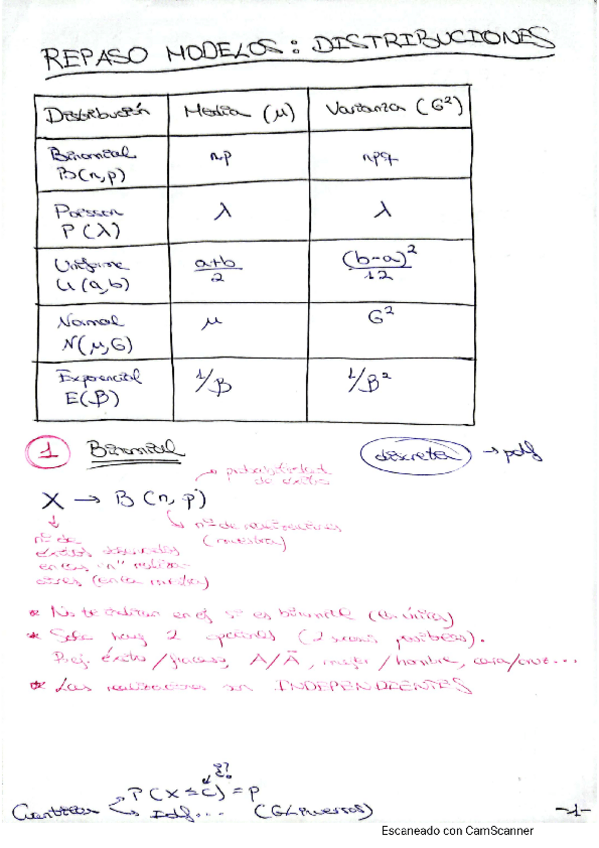 REPASO MODELOS: DISTRIBUCIONES
Distribución Media (μ) Varianza (σ²)
Binomial B(n,p) np npq
Poisson P(λ) λ λ
Uniforme U(a,b) a+b/2 (b-a)²/12
Normal N(μ,σ) μ σ²
Exponencial E(β) 1/β 1/β²
1 Binomial discreta → pdf
probabilidad de éxito
X → B (n, p)
nº de realizaciones
(muestra)
nº de
éxitos observados
en las "n" realiza-
ciones (en la muestra)
* No te dicen en el que es binomial (la única)
* Solo hay 2 opciones (2 sucesos posibles).
P.ej. éxito/fracaso, A/Ā, mujer/hombre, cara/cruz...
* Las realizaciones son INDEPENDIENTES
¿?
Cuantiles P(X ≤ c) = p
Idf... (G/Inversos)
-1-
Escaneado con CamScanner